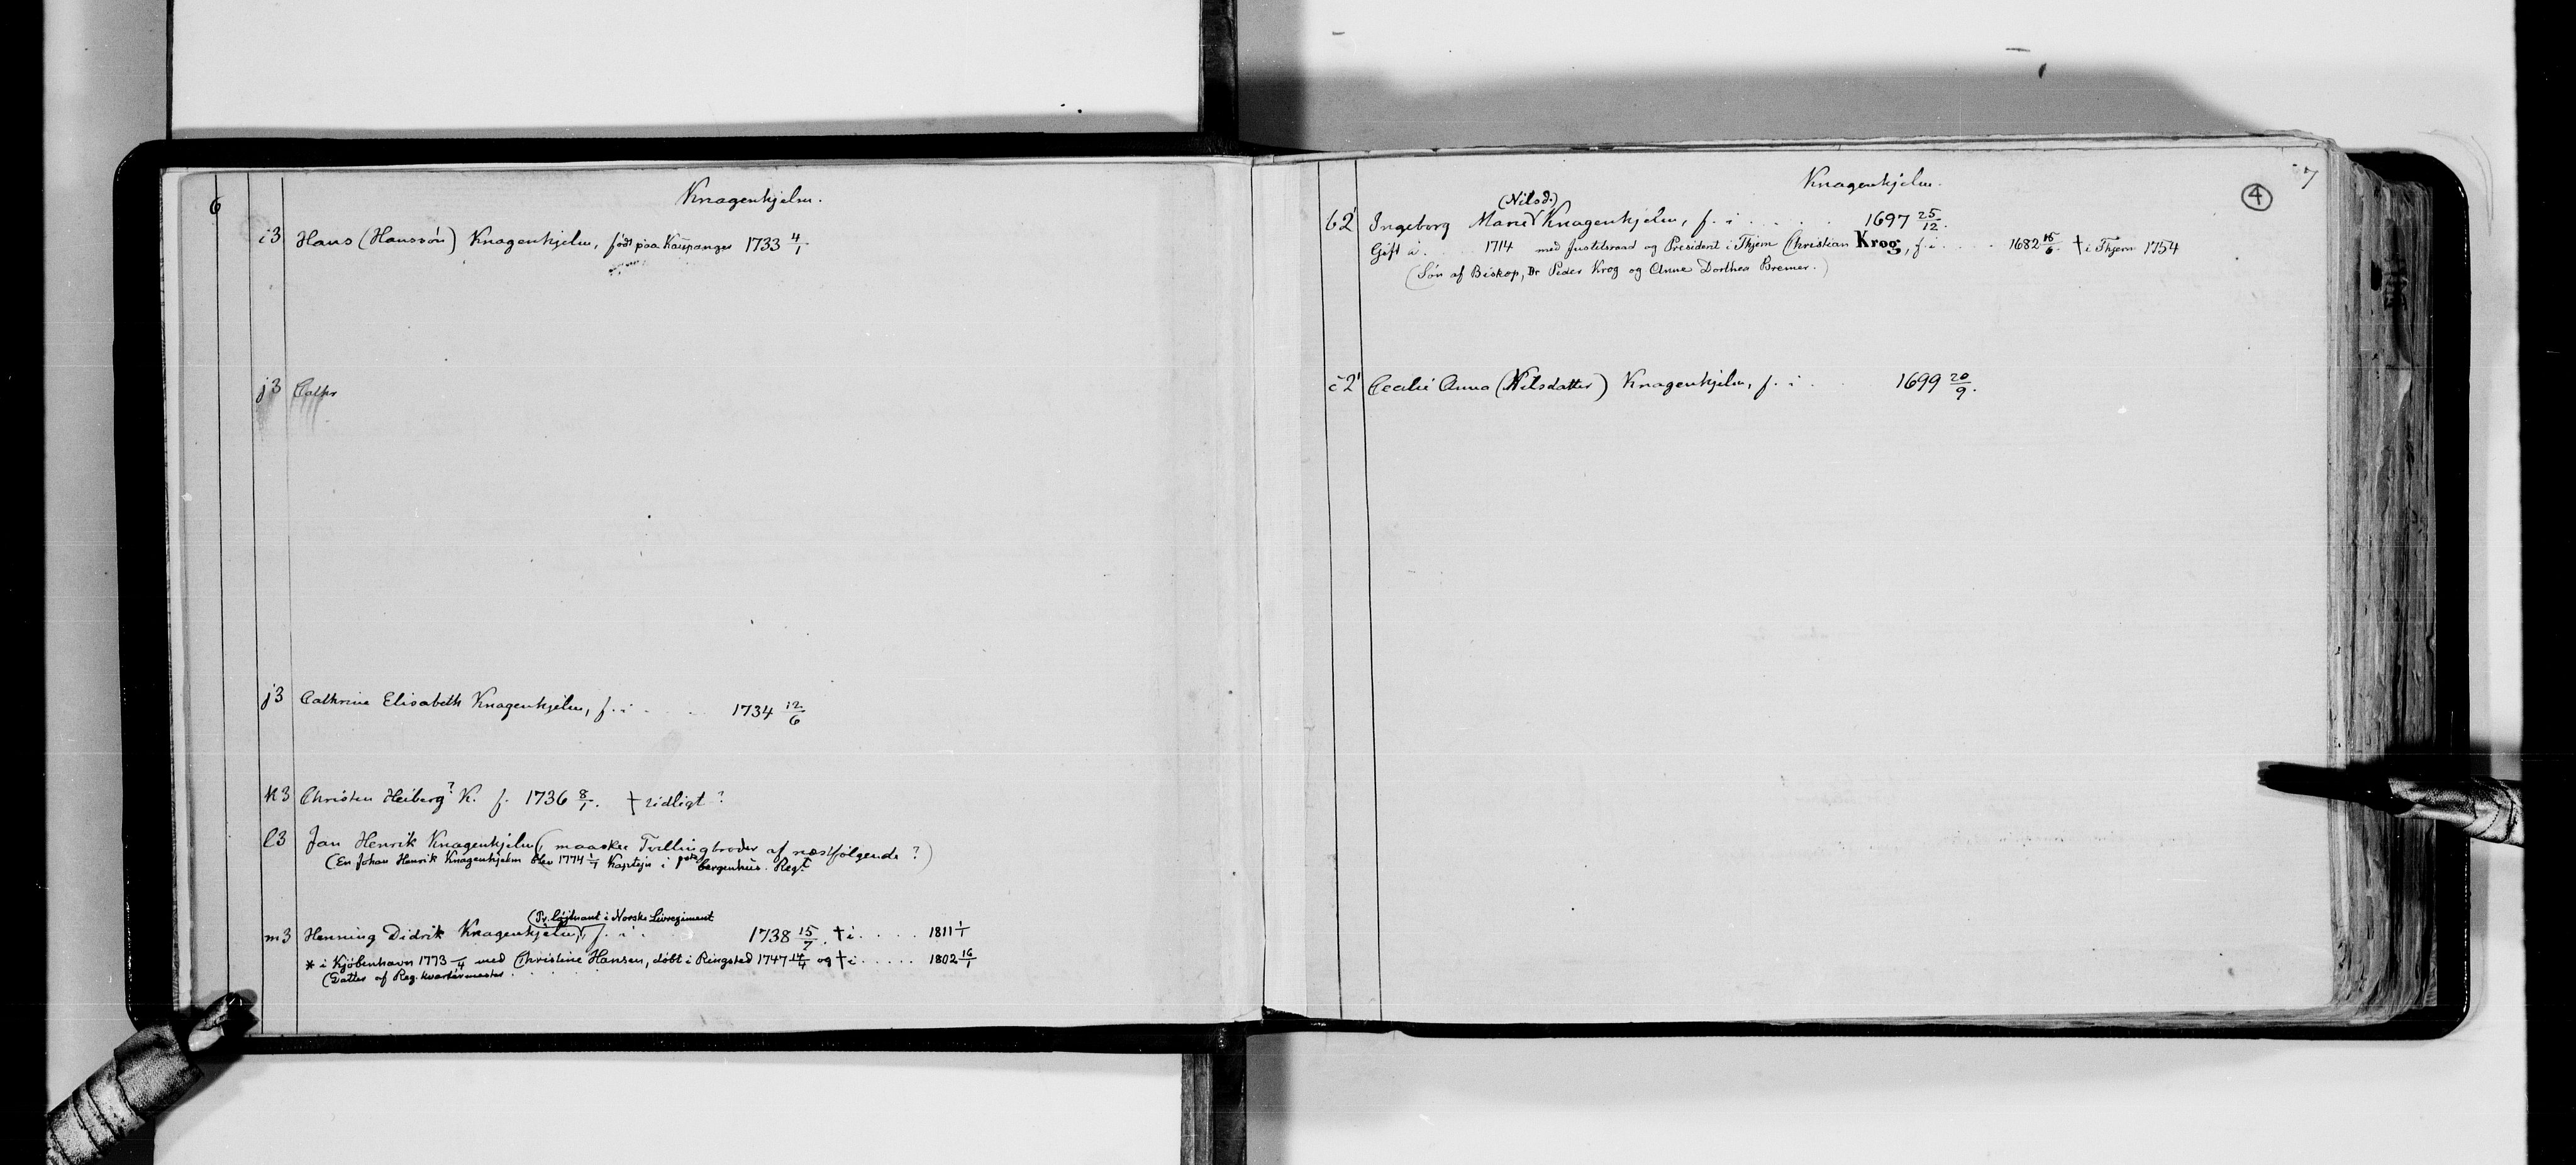 6
Knagenhjelm.
i3 Hans (Hanssön) Knagenhjelm, födt paa Kaupanger 1733 4/1.
j3 Cathr
j3 Cathrine Elisabeth Knagenhjelm, f. i . . . . 1734 12/6
k3 Christen Heiberg? K. f. 1736 8/1. † tidligt?
l3 Jan Henrik Knagenhjelm (, maaske Tvillingbroder af næstfølgende?)
(En Johan Henrik Knagenhjelm blev 1774 1/7 Kaptejn i bergenhus. Regt
(Pr. løjtnant i Norske Livregiment
m3 Henning Didrik Knagenhjelm, f. i . . 1738 15/7. † i . . . . 1811 1/1
* i Kjøbenhavn 1773 /4 med Christine Hansen, döbt i Ringsted 1747 14/4 og † i . . . . . 1802 16/1
(Datter af Reg. kvartérmester . . . . .
7
4
Knagenhjelm.
(Nilsd.)
b2' Ingeborg Marie Knagenhjelm, f. i . . . . . 1697 25/12.
Gift i . . . 1714 med Justitsraad og President i Thjem Christian Krog, f. i . . . . 1682 15/6. † i Thjem 1754
(Søn af Biskop, Dr Peder Krog og Anne Dorthea Bremer.)
c2' Cecilie Anna (Nilsdatter) Knagenhjelm, f. i . . . 1699 20/9.